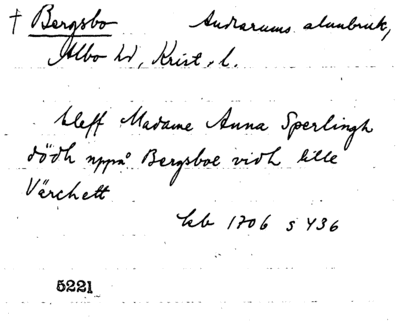 † Bergsbo Andrarums alunbruk,
Albo hd, Krist. l.
bleff Madame Anna Sperlingh
dödh uppå Bergsboe vidh lille
Värchett
kb 1706 s 436
5221